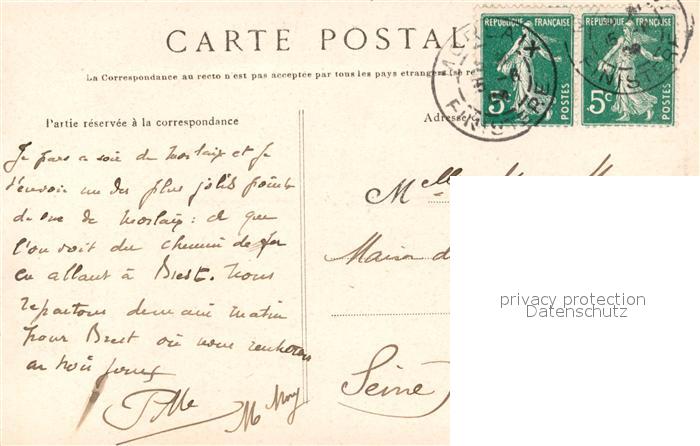 CARTE POSTALE
RÉPUBLIQUE FRANÇAISE
RÉPUBLIQUE FRANÇAISE
5c POSTES
5c POSTES
MORLAIX
FINISTERE
FINISTERE
La Correspondance au recto n'est pas acceptée par tous les pays étrangers (se re
Partie réservée à la correspondance
Adresse
Je pars ce soir de Morlaix et je
t'envoie un des plus jolis points
de vue de Morlaix : ce que
l'on voit du chemin de fer
en allant à Brest. Nous
repartons demain matin
pour Brest où nous rentrerons
Melle
Maison d
Seine
privacy protection
Datenschutz